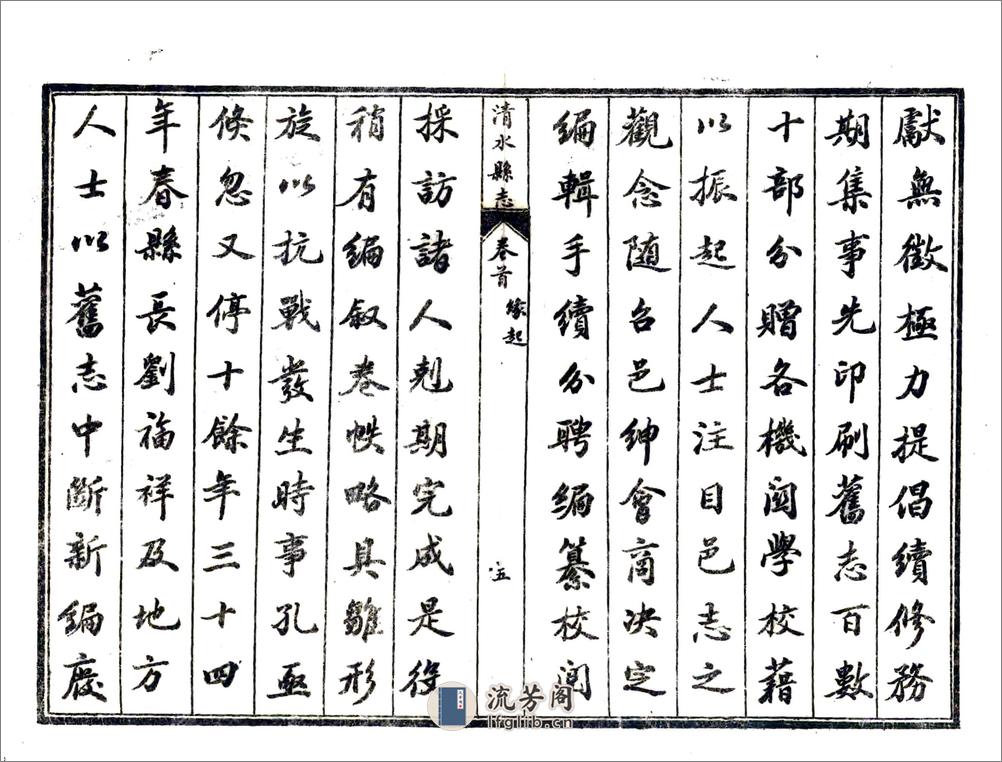 獻無徵極力提倡續修務
期集事先印刷舊志百數
十部分贈各機関學校藉
以振起人士注目邑志之
觀念随召邑紳會商决定
編輯手續分聘編纂校閲
清水縣志 卷首 緣起 五
採訪諸人剋期完成是役
稍有編叙卷帙略具雛形
旋以抗戰發生時事孔亟
倏忽又停十餘年三十四
年春縣長劉福祥及地方
人士以舊志中斷新編廢
流芳阁
lfglib.cn